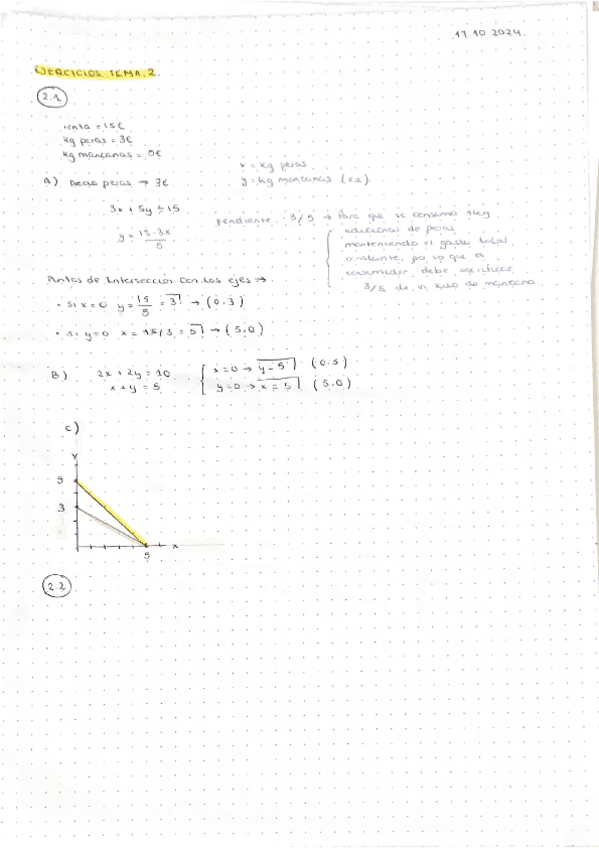 17.10.2024.
EJERCICIOS TEMA 2.
2.1
renta = 15€
kg peras = 3€
kg manzanas = 5€
x = kg peras
y = kg manzanas
A) peras → 3€
3x + 5y = 15
y = 15-3x / 5
pendiente: 3/5 → Para que se consuma 1kg
adicional de peras,
manteniendo el gasto total
constante, por lo que el
consumidor, debe sacrificar
3/5 de un kilo de manzana.
Puntos de Intersección con los ejes →
• Si x=0 y = 15/5 = 3 → (0,3)
• Si y=0 x = 15/3 = 5 → (5,0)
B) 2x + 2y = 10
x + y = 5
x=0 → y=5 (0,5)
y=0 → x=5 (5,0)
C)
Y
5
3
5
x
2.2